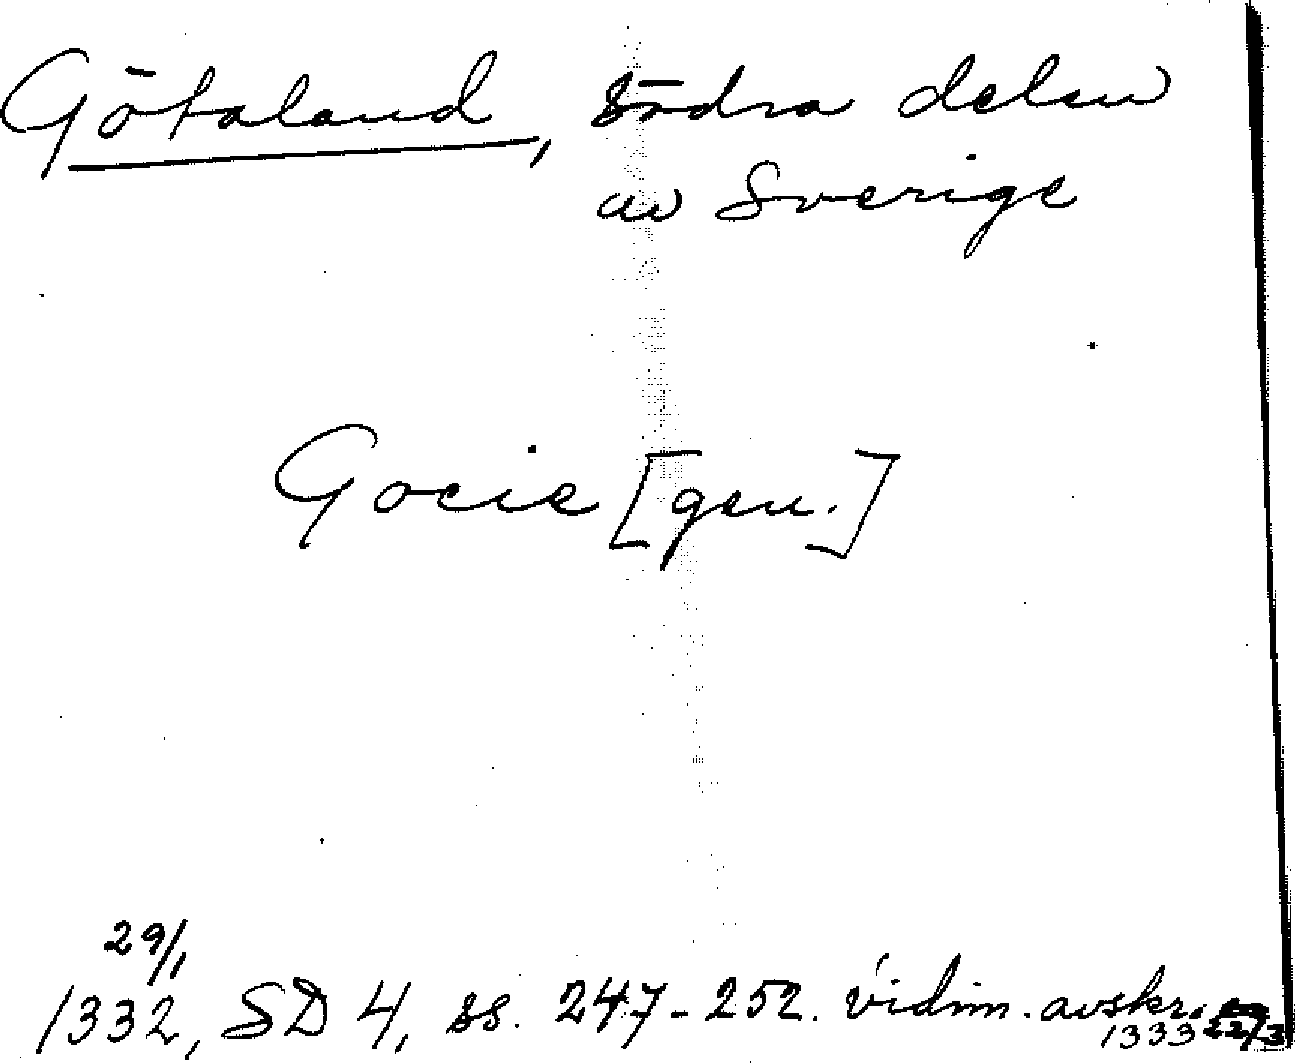 Götaland, södra delen
av Sverige
Gocie [gen.]
29/1
1332, SD 4, ss. 247-252. vidim. avskr.
1333 22/3